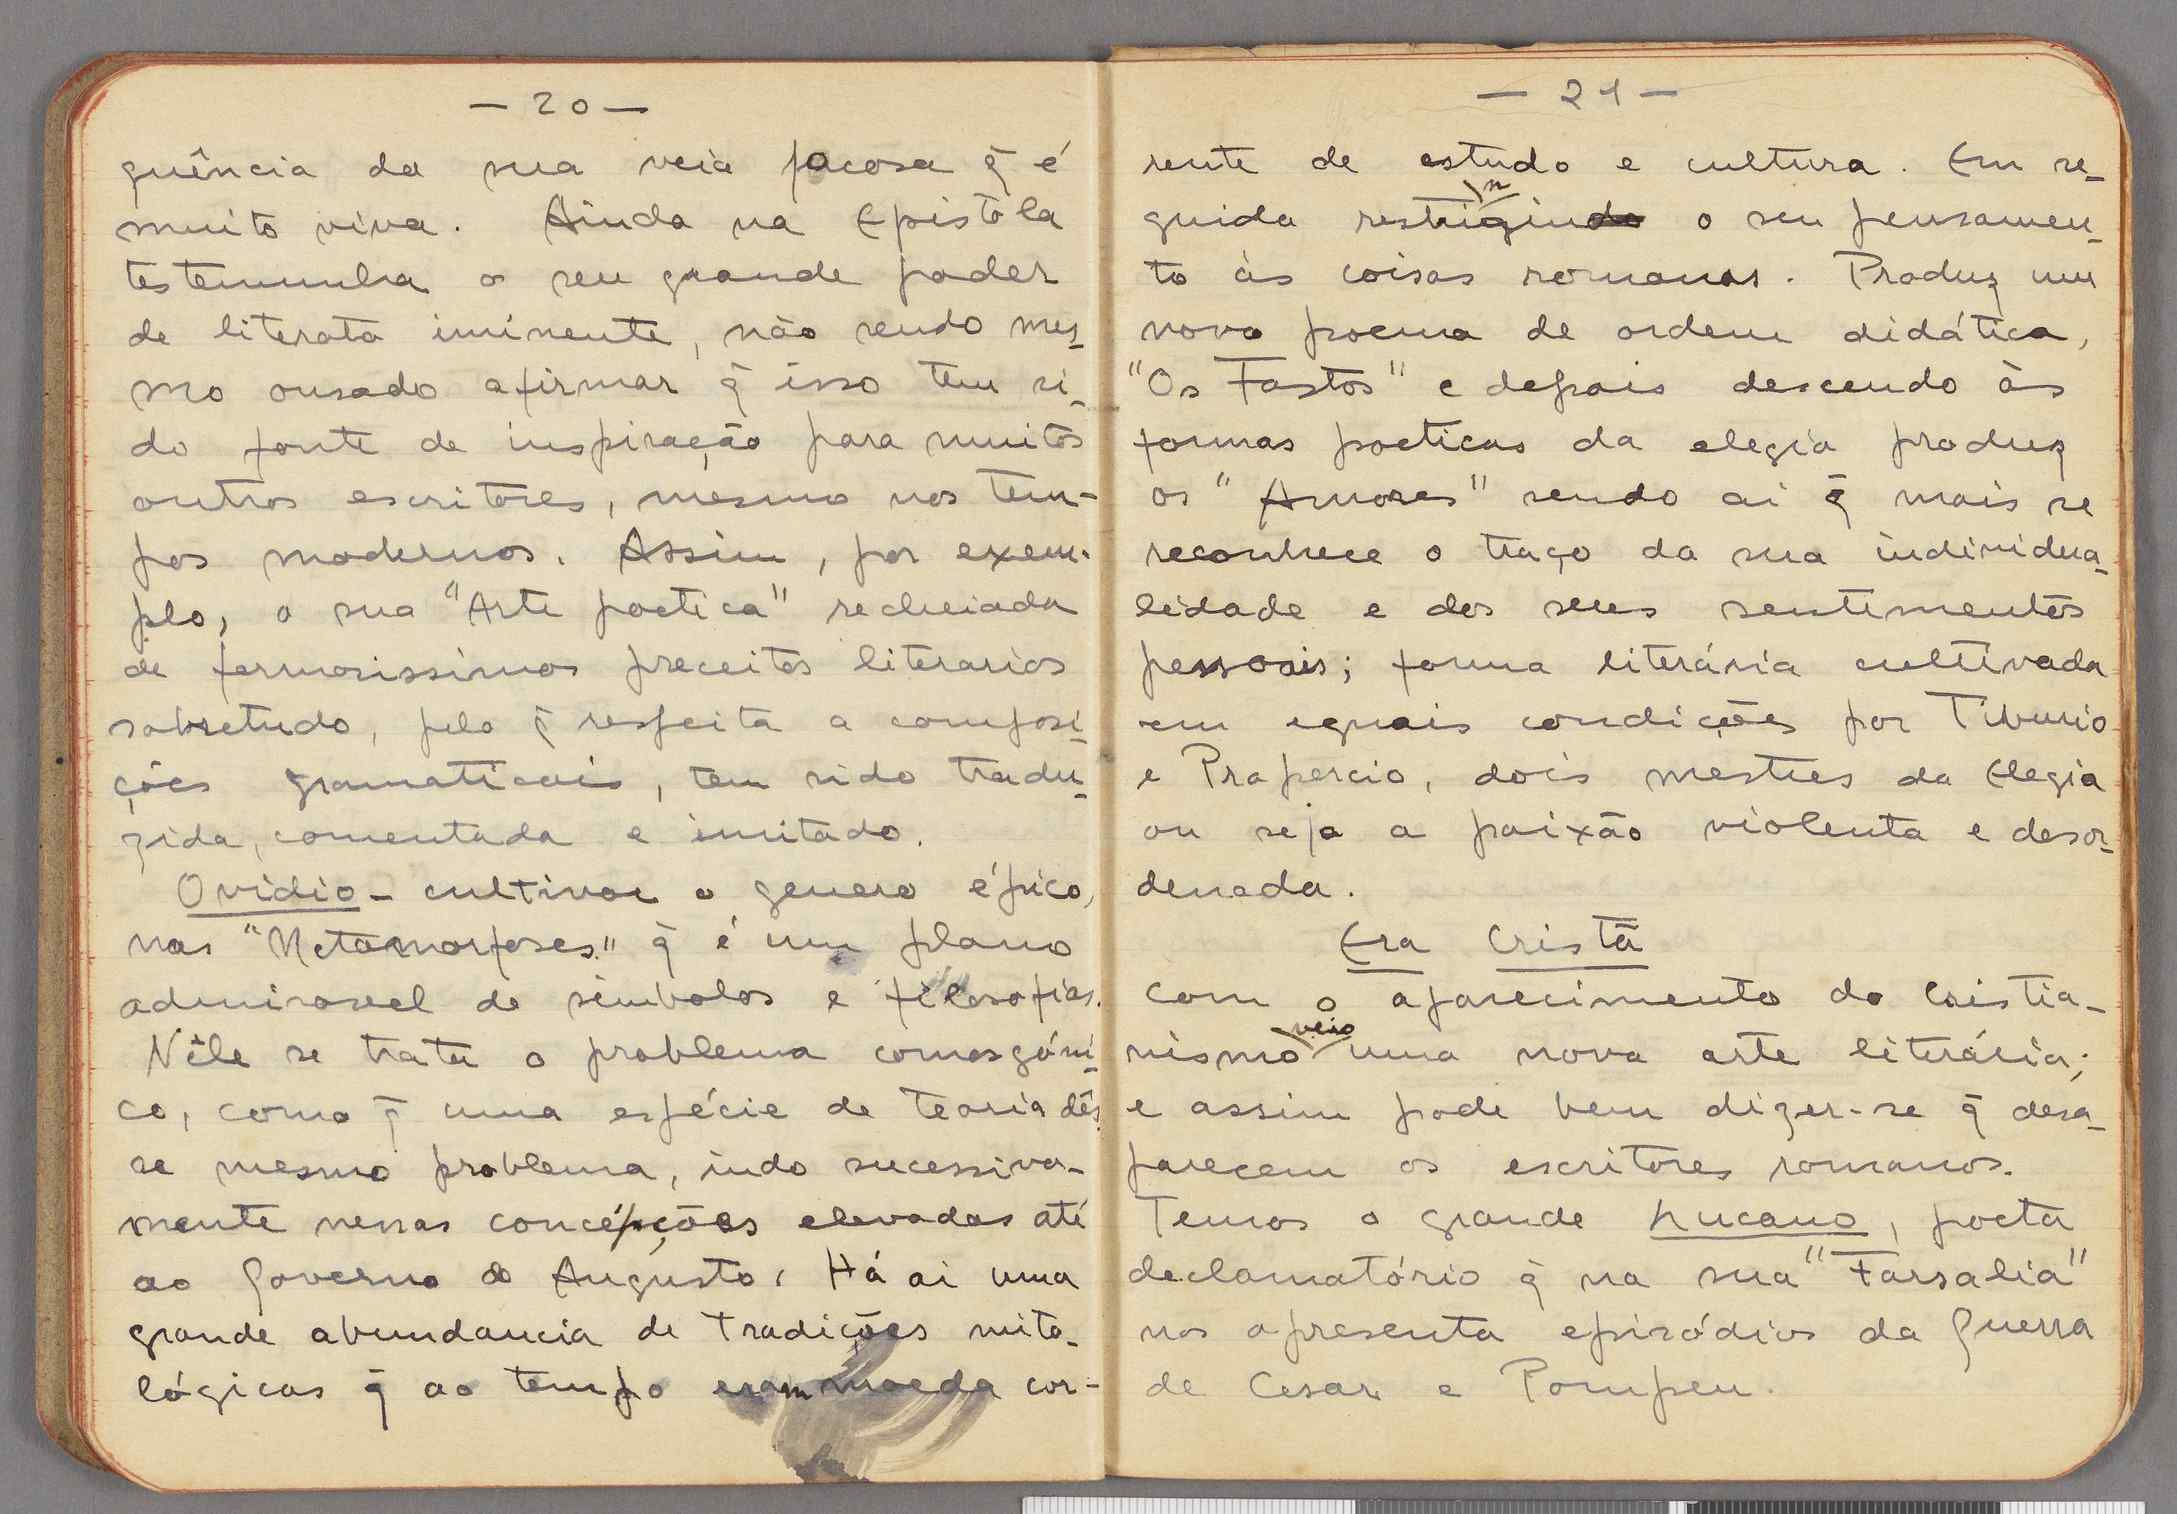 — 20 —
quência da sua veia jocosa q̃ é
muito viva. Ainda na Epistola
testemunha o seu grande poder
de literata iminente, não sendo mes-
mo ousado afirmar q̃ isso tem si-
do fonte de inspiração para muitos
outros escritores, mesmo nos tem-
pos modernos. Assim, por exem-
plo, a sua "Arte poetica" recheiada
de fermosissimos preceitos literarios
sobretudo, pelo q̃ respeita a composi-
ções gramaticais, tem sido tradu-
zida, comentada e imitado.
Ovidio - cultivou o genero épico,
nas "Metamorfoses" q̃ é um plano
admiravel de simbolos e filosofias.
Nêle se trata o problema comosgóni-
co, como q̃ uma espécie de teoria dês-
se mesmo problema, indo sucessiva-
mente nessas concépções elevadas até
ao Governo de Augusto. Há ai uma
grande abundancia de tradições mito-
lógicas q̃ ao tempo eram moeda cor-
— 21 —
rente de estudo e cultura. Em se-
n
guida restrigindo o seu pensamen-
to às coisas romanas. Produz um
novo poema de ordem didática,
"Os Fastos" e depois descendo às
formas poeticas da elegia produz
os "Amores" sendo ai q̃ mais se
reconhece o traço da sua individua-
lidade e dos seus sentimentos
pessoais; forma literária cultivada
em eguais condições por Tiburio
e Propercio, dois mestres da Elegia
ou seja a paixão violenta e desor-
denada.
Era Cristã
Com o aparecimento do Cristia-
veio
nismo uma nova arte literária;
e assim pode bem dizer-se q̃ desa-
parecem os escritores romanos.
Temos o grande Lucano, poeta
declamatório q̃ na sua "Farsalia"
nos apresenta episódios da Guerra
de Cesar e Pompeu.